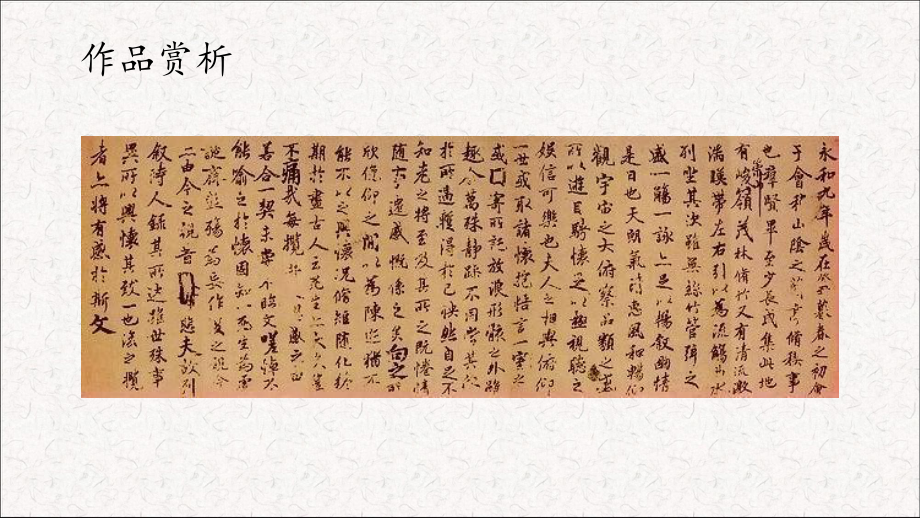 作品赏析
永和九年歲在癸丑暮春之初會
于會稽山陰之蘭亭脩稧事
也羣賢畢至少長咸集此地
有崇山峻領茂林脩竹又有清流激
湍暎帶左右引以為流觴曲水
列坐其次雖無絲竹管弦之
盛一觴一詠亦足以暢敘幽情
是日也天朗氣清惠風和暢仰
觀宇宙之大俯察品類之盛
所以遊目騁懷足以極視聽之
娛信可樂也夫人之相與俯仰
一世或取諸懷抱悟言一室之
或因寄所託放浪形骸之外雖
趣舍萬殊靜躁不同當其欣
於所遇蹔得於己怏然自足不
知老之將至及其所之既惓情
隨事遷感慨係之矣向之所
欣俛仰之閒以為陳迹猶不
能不以之興懷況脩短隨化終
期於盡古人云死生亦大矣豈
不痛哉每攬昔人興感之由
若合一契未嘗不臨文嗟悼不
能喻之於懷固知一死生為虛
誕齊彭殤為妄作後之視今
亦由今之視昔悲夫故列
敘時人錄其所述雖世殊事
異所以興懷其致一也後之攬
者亦將有感於斯文